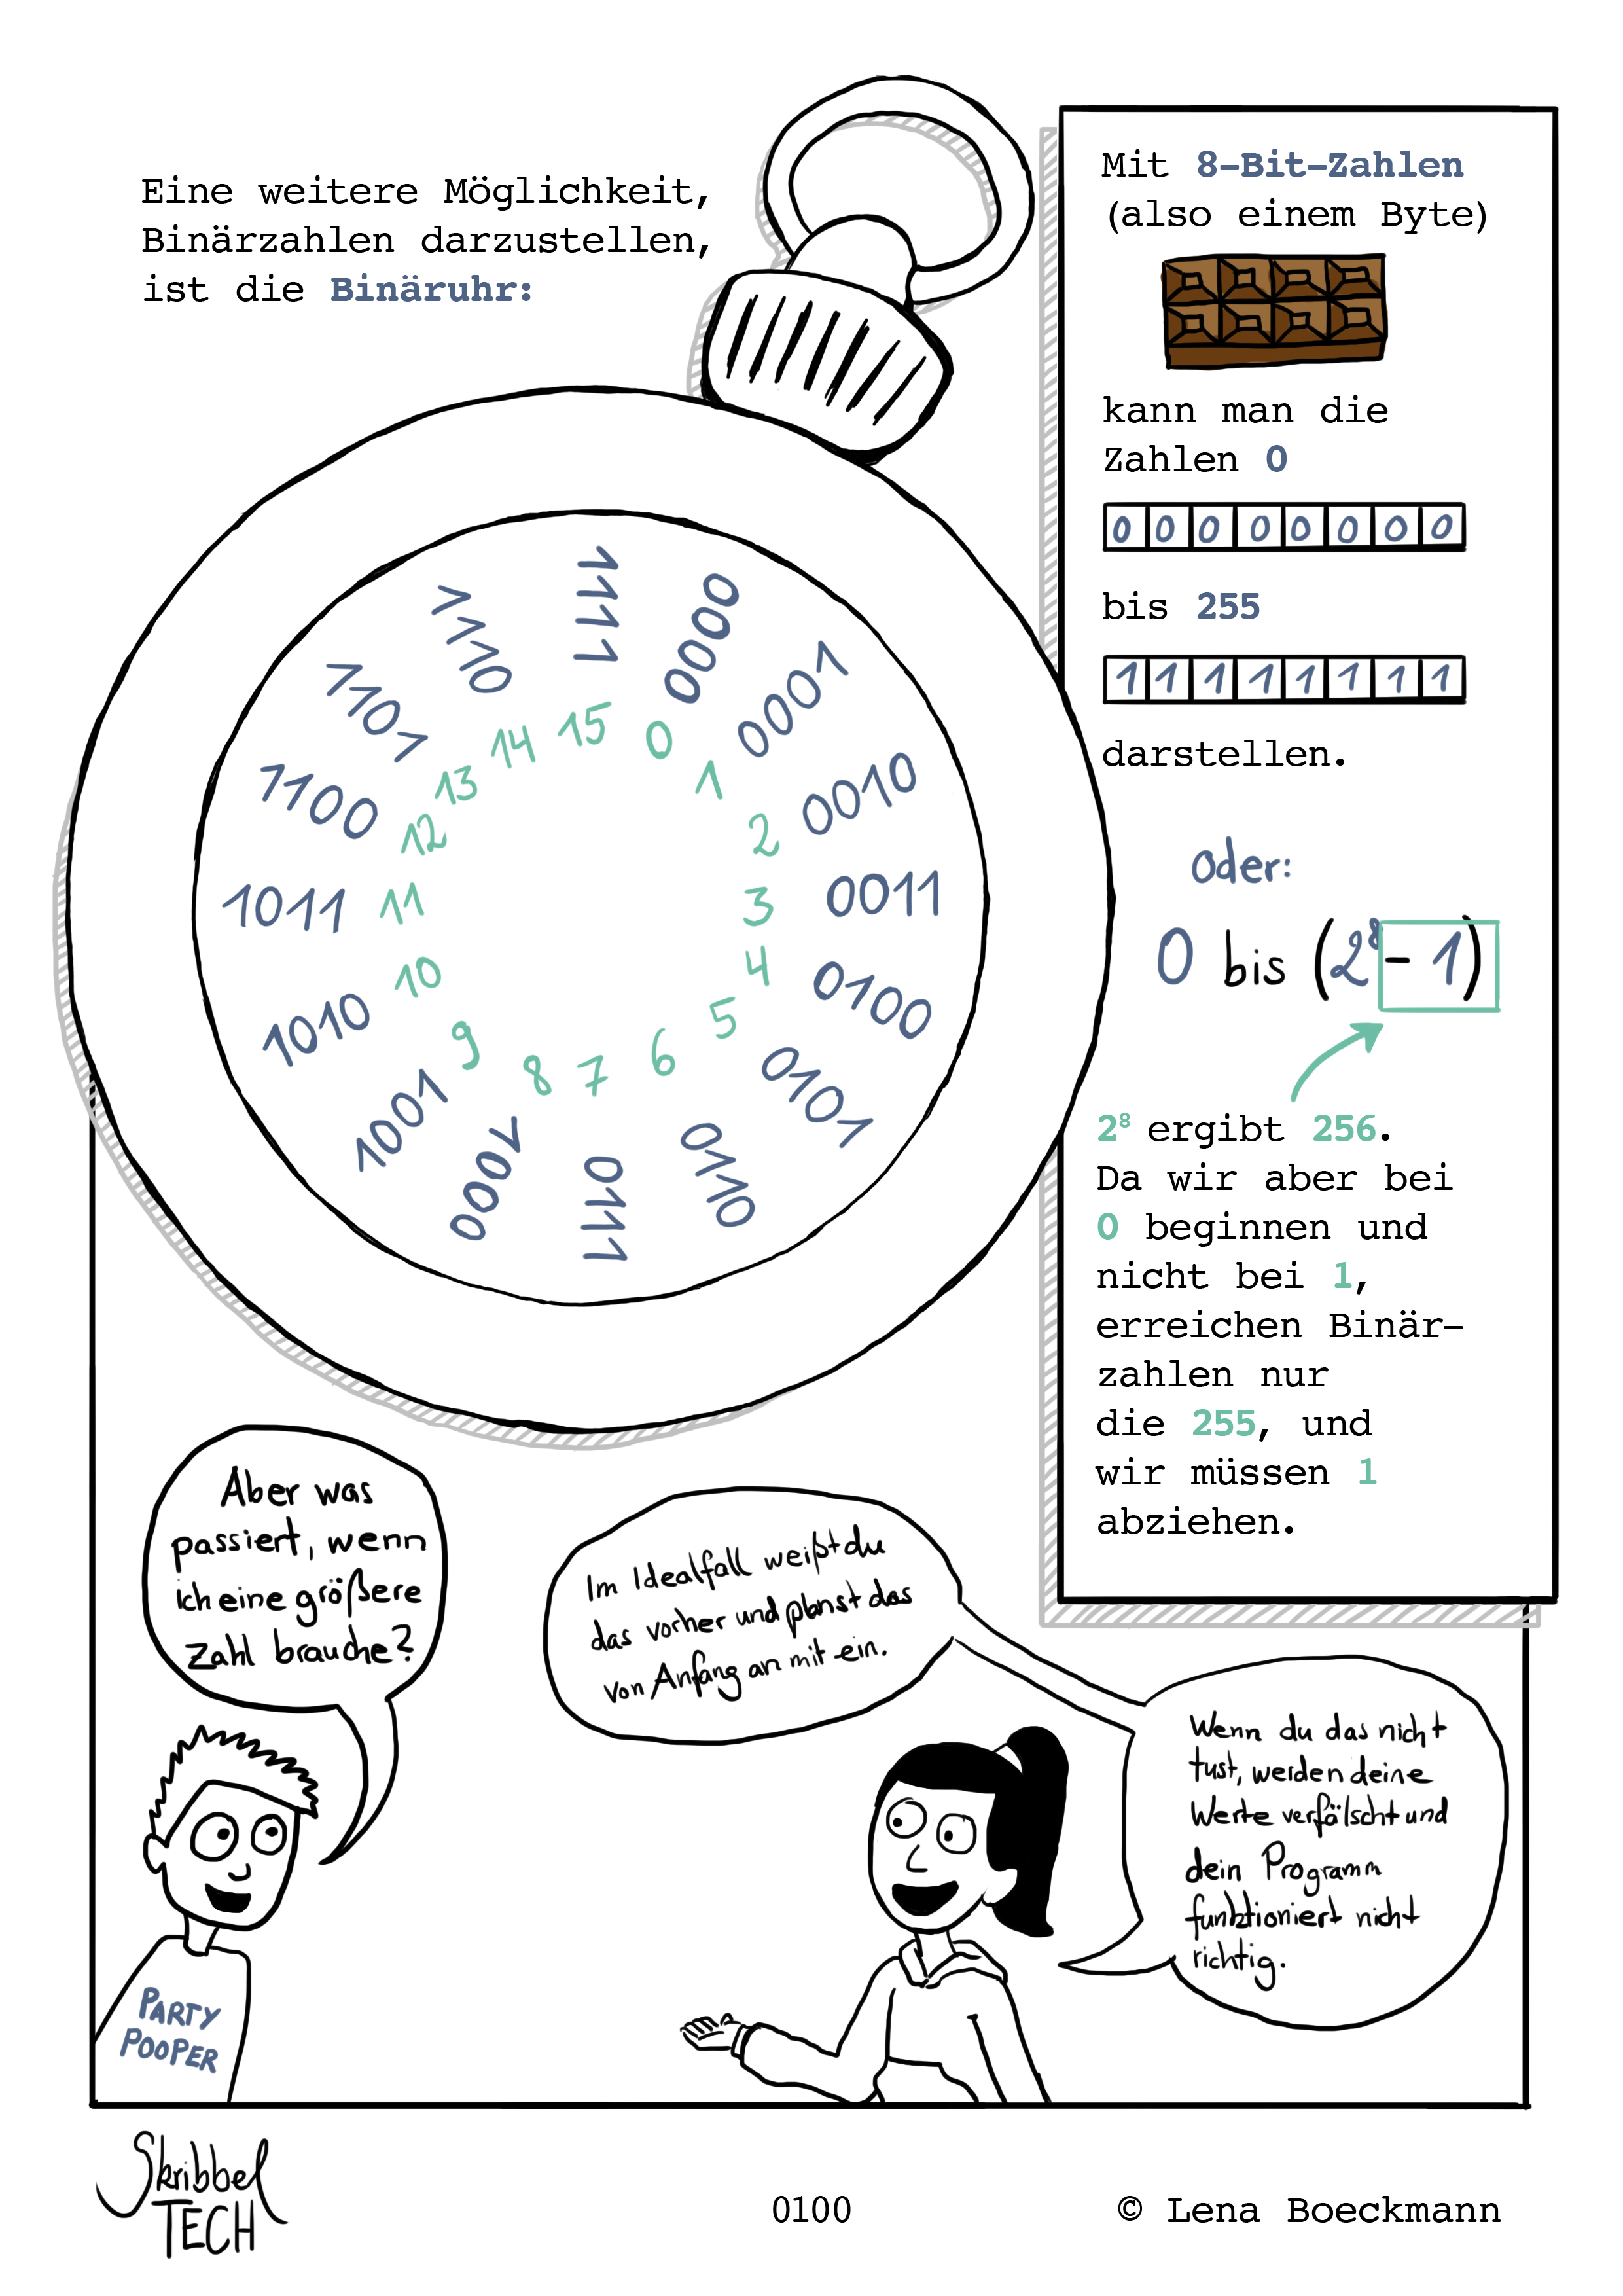 Eine weitere Möglichkeit,
Binärzahlen darzustellen,
ist die Binäruhr:
0000
0001
0010
0011
0100
0101
0110
0111
1000
1001
1010
1011
1100
1101
1110
1111
0
1
2
3
4
5
6
7
8
9
10
11
12
13
14
15
Mit 8-Bit-Zahlen
(also einem Byte)
kann man die
Zahlen 0
0 0 0 0 0 0 0 0
bis 255
1 1 1 1 1 1 1 1
darstellen.
oder:
0 bis (2⁸ - 1)
2⁸ ergibt 256.
Da wir aber bei
0 beginnen und
nicht bei 1,
erreichen Binär-
zahlen nur
die 255, und
wir müssen 1
abziehen.
Aber was
passiert, wenn
ich eine größere
Zahl brauche?
Im Idealfall weißt du
das vorher und planst das
von Anfang an mit ein.
Wenn du das nicht
tust, werden deine
Werte verfälscht und
dein Programm
funktioniert nicht
richtig.
PARTY
POOPER
Skribbel
TECH
0100
© Lena Boeckmann